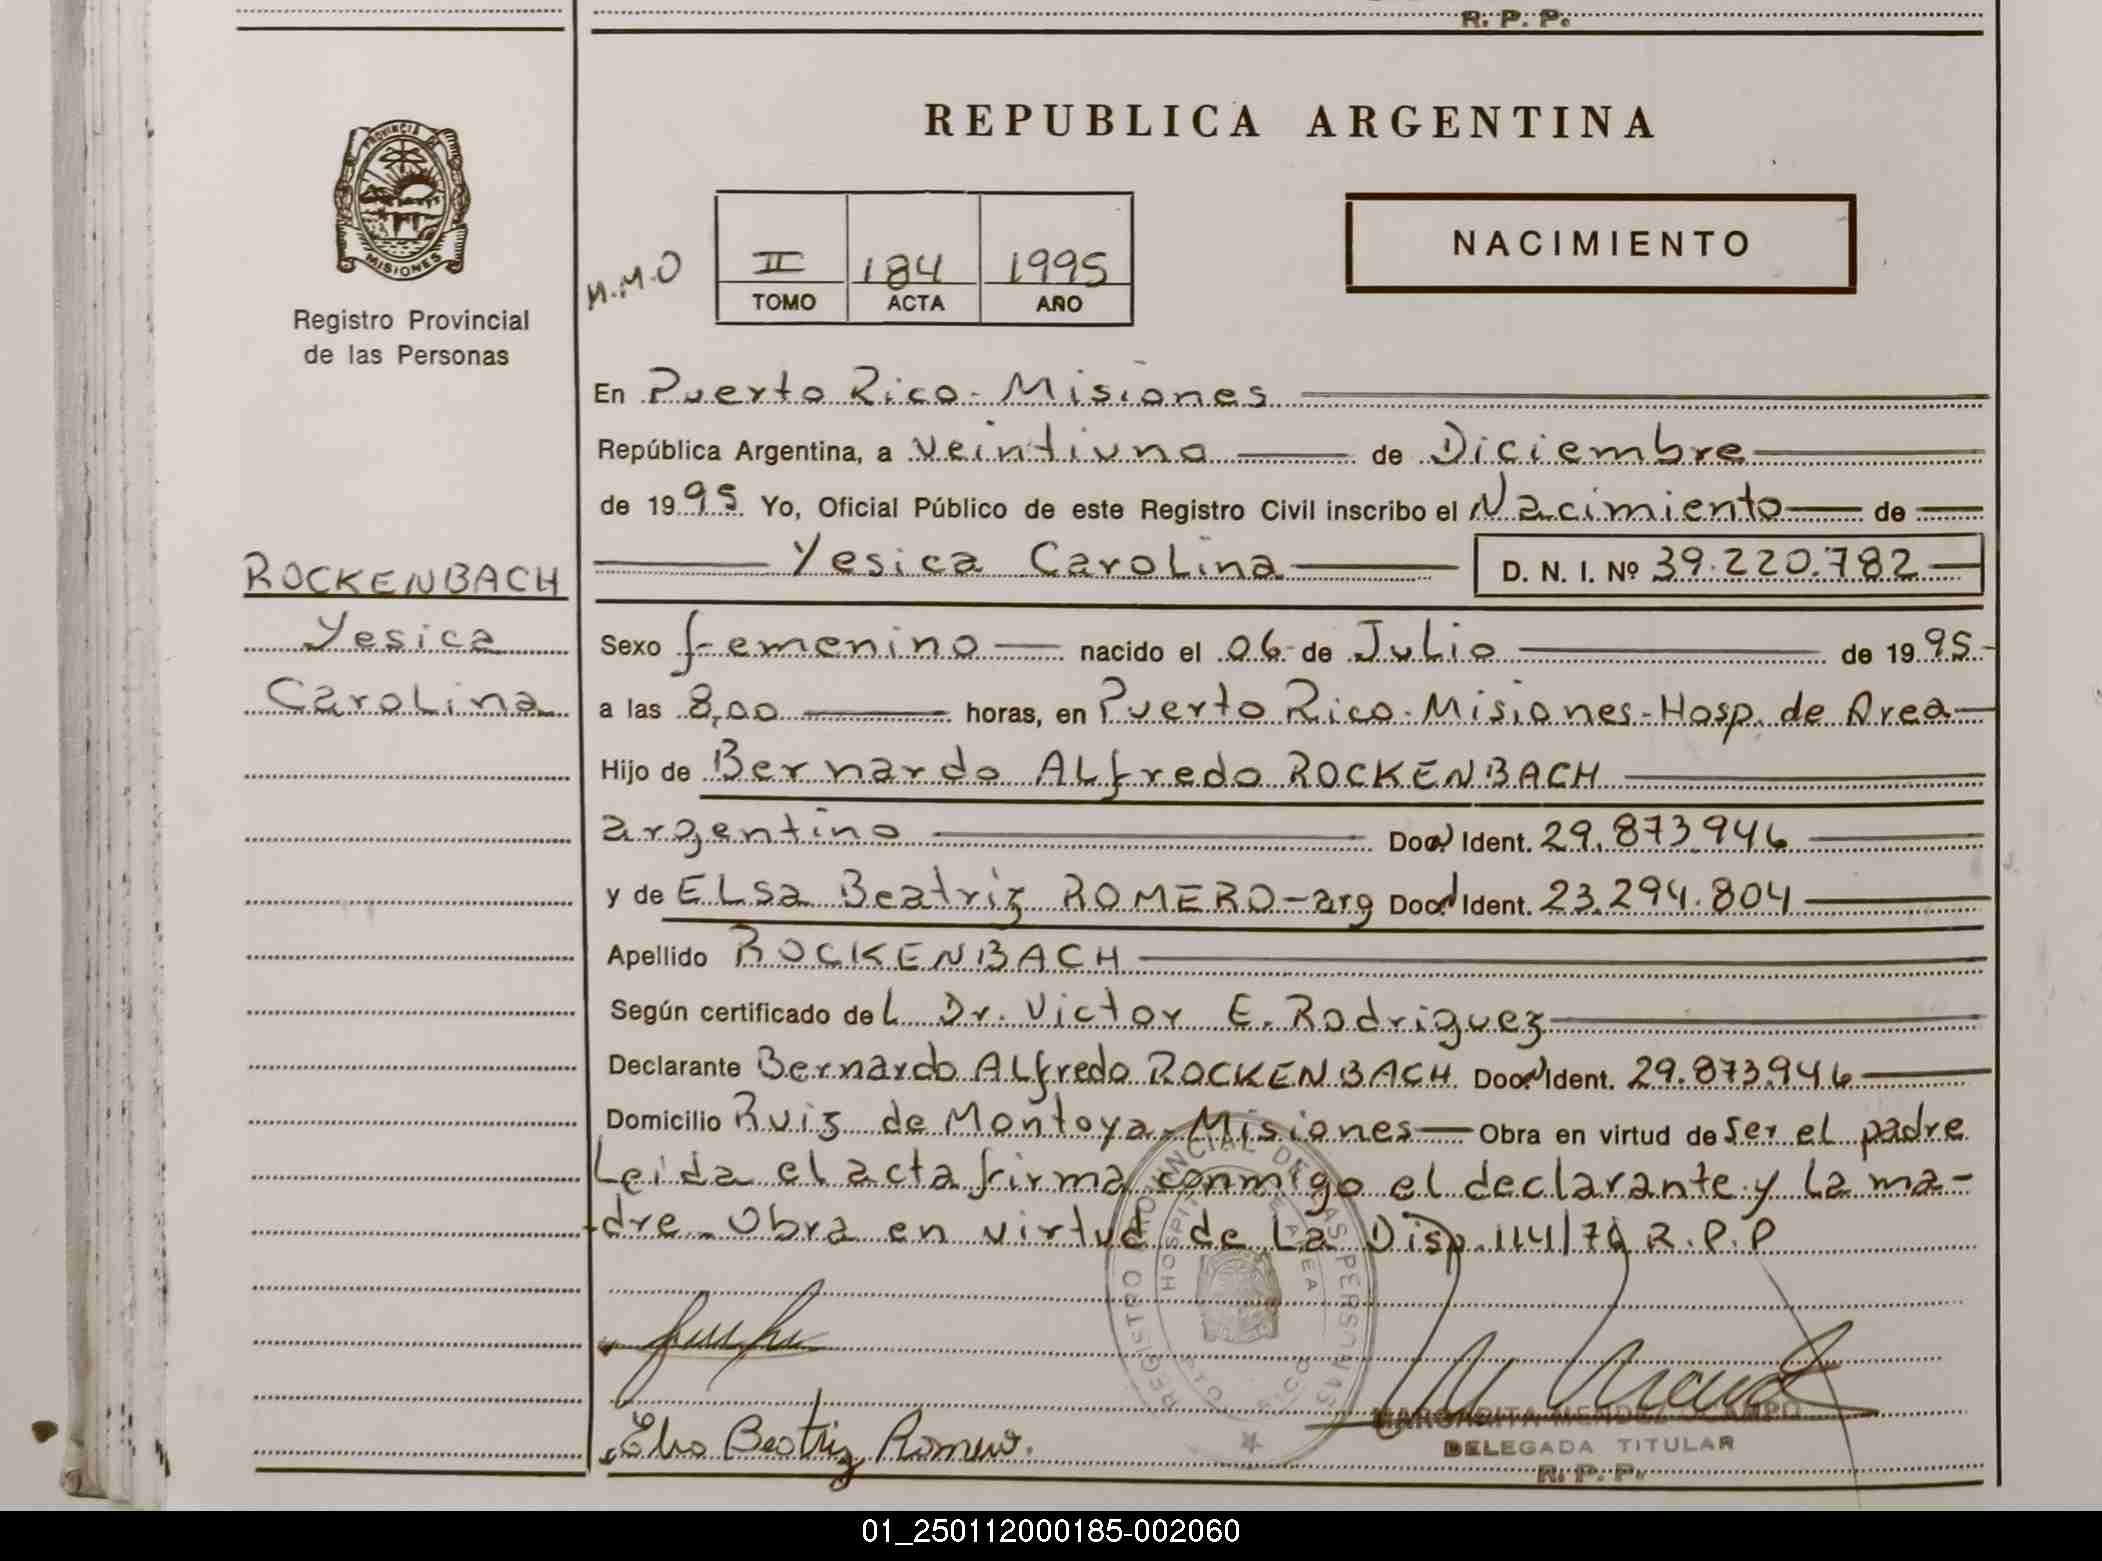 R. P. P.
REPUBLICA ARGENTINA
PROVINCIA DE
MISIONES
Registro Provincial
de las Personas
M.M.O
II 184 1995
TOMO ACTA AÑO
NACIMIENTO
En Puerto Rico - Misiones
República Argentina, a veintiuno de Diciembre
de 1995 Yo, Oficial Público de este Registro Civil inscribo el Nacimiento de
Yesica Carolina D. N. I. Nº 39.220.782
ROCKENBACH
Yesica
Carolina
Sexo femenino nacido el 06 de Julio de 1995
a las 8,00 horas, en Puerto Rico - Misiones - Hosp. de Area
Hijo de Bernardo Alfredo ROCKENBACH
argentino Doc. Ident. 29.873.946
y de Elsa Beatriz ROMERO - arg Doc. Ident. 23.294.804
Apellido ROCKENBACH
Según certificado del Dr. Victor E. Rodriguez
Declarante Bernardo Alfredo ROCKENBACH Doc. Ident. 29.873.946
Domicilio Ruiz de Montoya - Misiones Obra en virtud de ser el padre
Leida el acta firma conmigo el declarante y la ma-
dre. Obra en virtud de la Disp. 114/70 R.P.P
REGISTRO PROVINCIAL DE LAS PERSONAS
HOSPITAL DE AREA
Elsa Beatriz Romero.
MARGARITA MENDEZ OCAMPO
DELEGADA TITULAR
R. P. P.
01_250112000185-002060